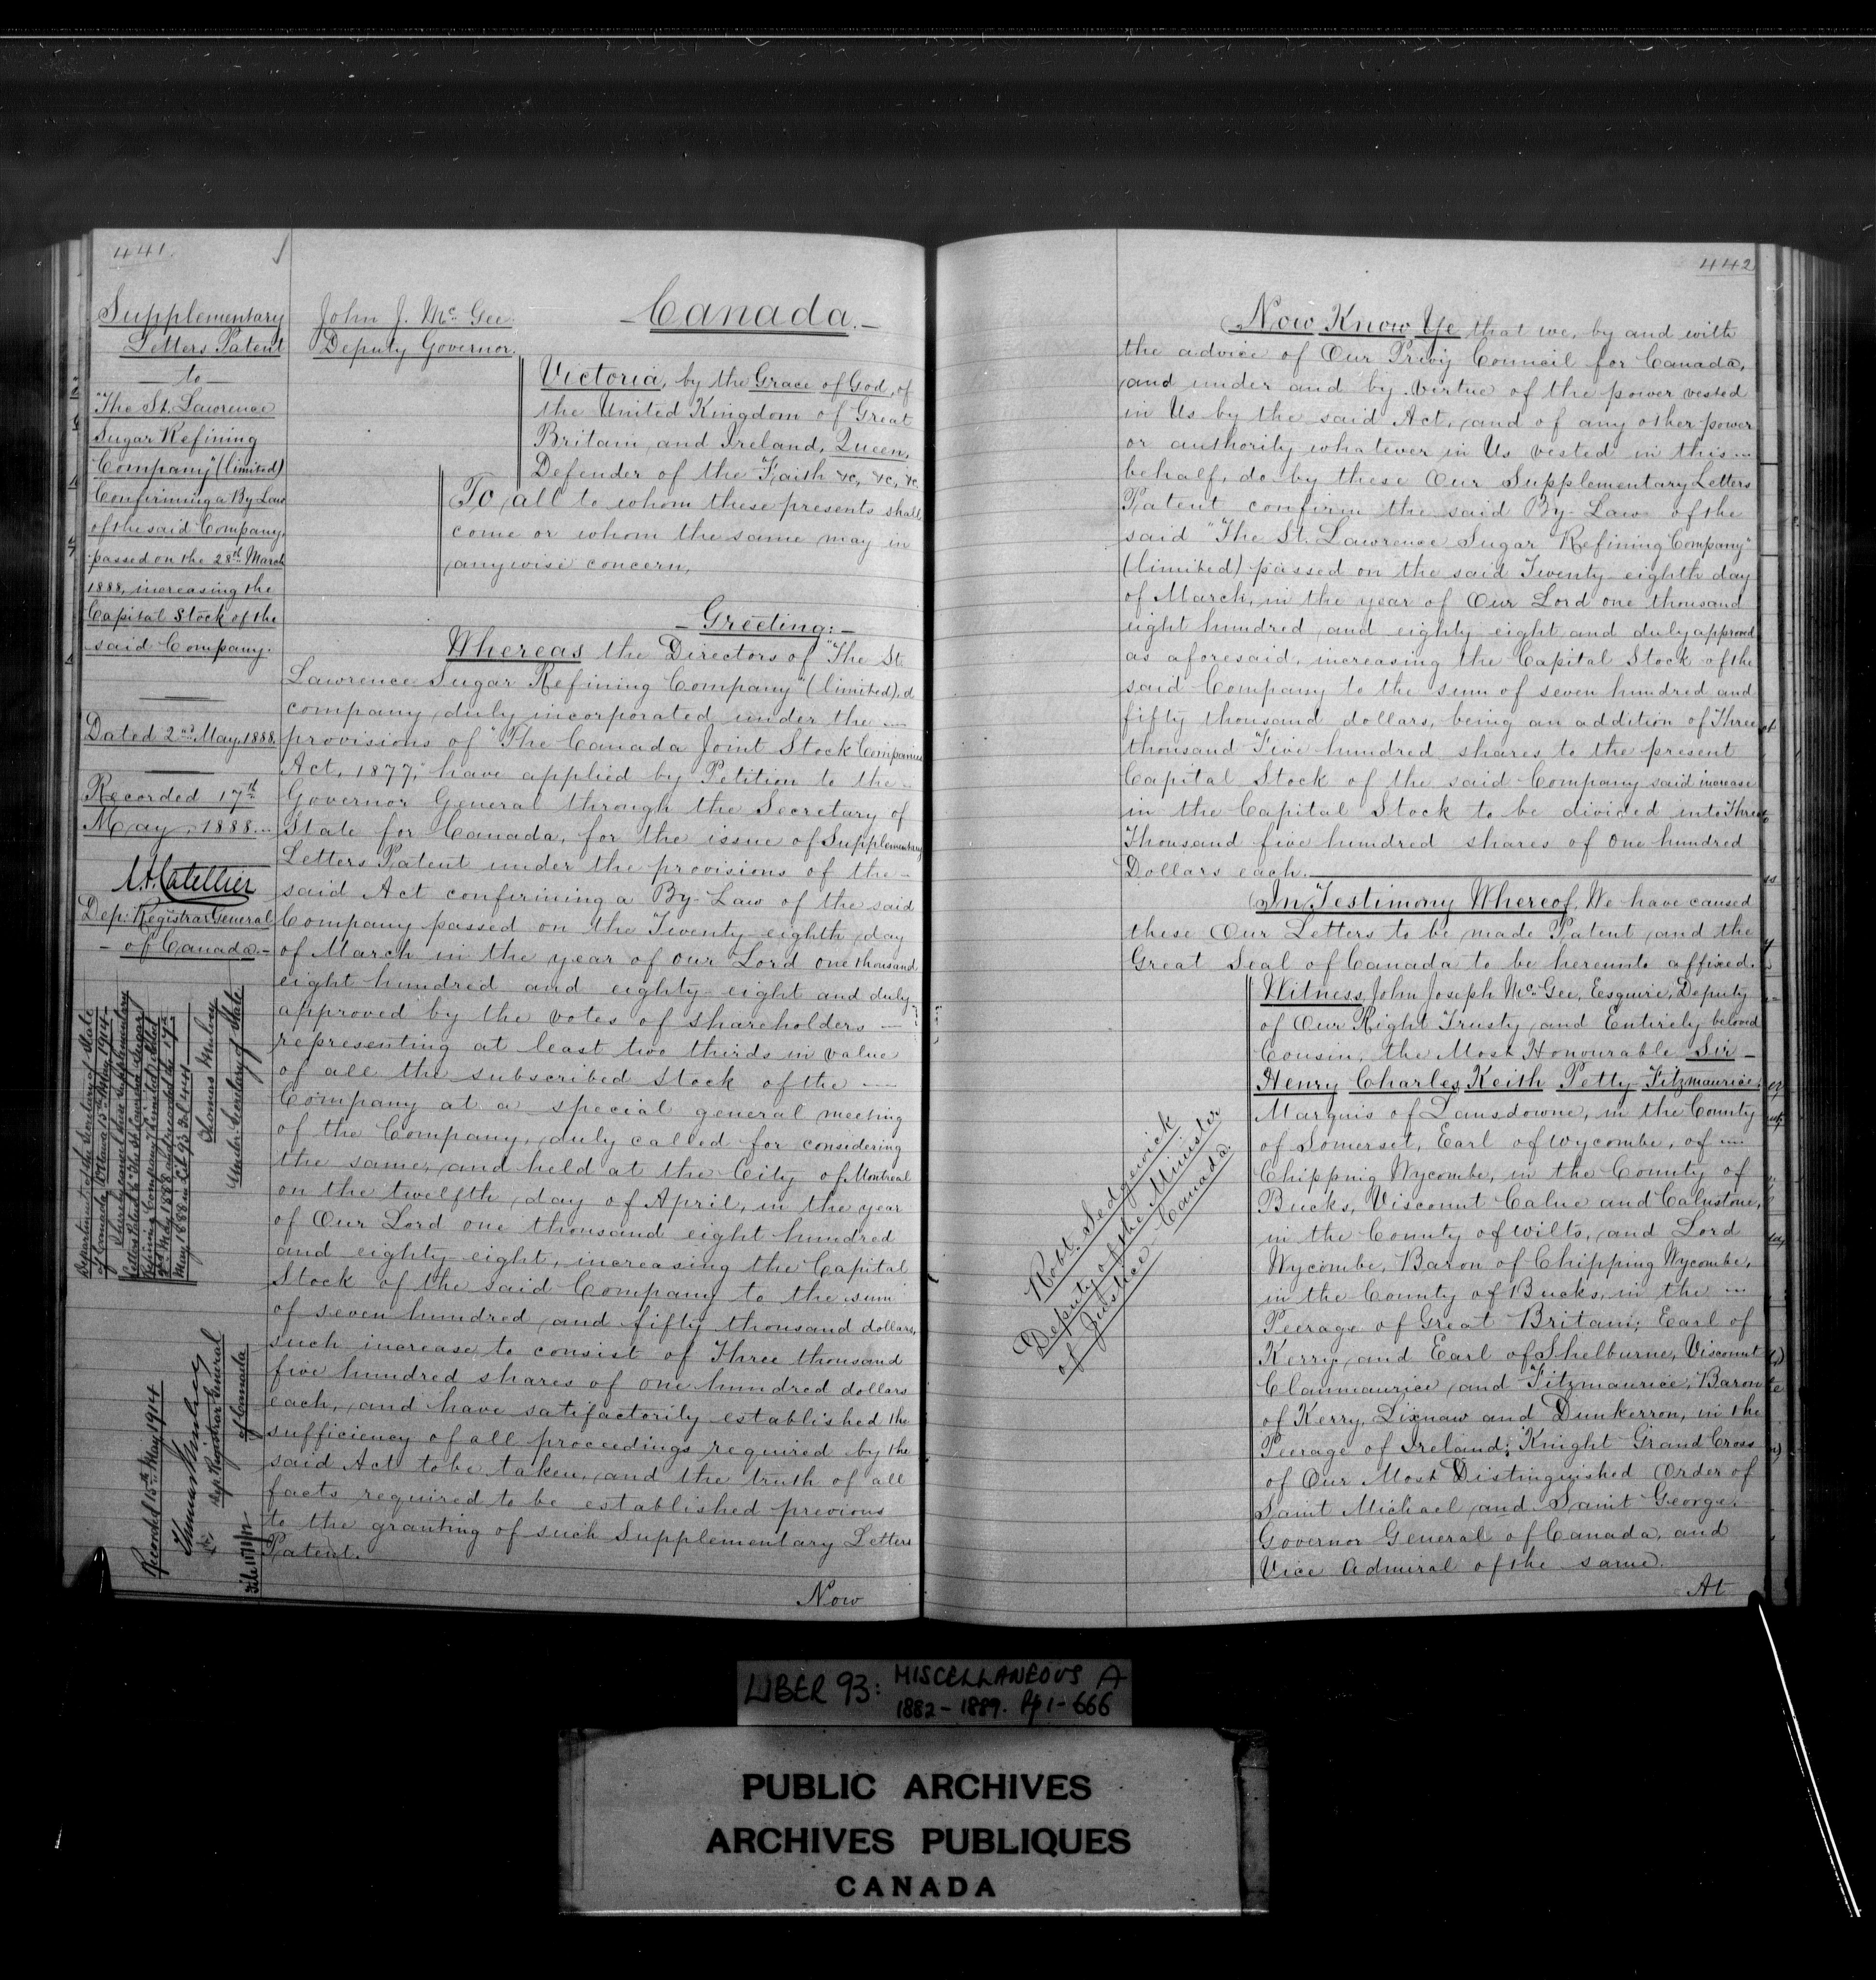 441.
Supplementary
Letters Patent
to
"The St. Lawrence
Sugar Refining
Company" (limited)
Confirming a By-Law
of the said Company,
passed on the 28th March
1888, increasing the
Capital Stock of the
said Company.
Dated 2nd May, 1888.
Recorded 17th
May, 1888.
Dep: Registrar General
- of Canada. -
Department of the Secretary of State
of Canada, Ottawa 15th May, 1914
I hereby cancel these supplementary
Letters Patent to "The St. Lawrence Sugar
Refining Company" (limited) dated
2nd May 1888 and recorded the 17th
May, 1888 in Lib 93 Fol 441
Thomas Mulvey
Under-Secretary of State
Recorded 15th May, 1914
Thomas Mulvey
Dep Registrar General
of Canada
John J. McGee.
Deputy Governor.
- Canada. -
Victoria, by the Grace of God, of
the United Kingdom of Great
Britain and Ireland, Queen,
Defender of the Faith &c, &c, &c.
To all to whom these presents shall
come or whom the same may in
anywise concern,
- Greeting: -
Whereas the Directors of "The St.
Lawrence Sugar Refining Company" (limited), a
company duly incorporated under the
provisions of "The Canada Joint Stock Companies
Act, 1877," have applied by Petition to the
Governor General through the Secretary of
State for Canada, for the issue of Supplementary
Letters Patent under the provisions of the
said Act confirming a By-Law of the said
Company passed on the Twenty-eighth day
of March in the year of our Lord one thousand
eight hundred and eighty-eight and duly
approved by the votes of shareholders
representing at least two thirds in value
of all the subscribed stock of the
Company at a special general meeting
of the Company, duly called for considering
the same, and held at the City of Montreal
on the twelfth day of April, in the year
of Our Lord one thousand eight hundred
and eighty-eight, increasing the Capital
Stock of the said Company to the sum
of seven hundred and fifty thousand dollars,
such increase to consist of Three thousand
five hundred shares of one hundred dollars
each, and have satifactorily established the
sufficiency of all proceedings required by the
said Act to be taken, and the truth of all
facts required to be established previous
to the granting of such Supplementary Letters
Patent.
Now
442
Now Know Ye, that we, by and with
the advice of Our Privy Council for Canada,
and under and by virtue of the power vested
in Us by the said Act, and of any other power
or authority whatever in Us vested in this
behalf, do by these Our Supplementary Letters
Patent confirm the said By-Law of the
said "The St. Lawrence Sugar Refining Company"
(limited) passed on the said Twenty-eighth day
of March, in the year of Our Lord one thousand
eight hundred and eighty eight and duly approved
as aforesaid, increasing the Capital Stock of the
said Company to the sum of seven hundred and
fifty thousand dollars, being an addition of Three
thousand Five hundred shares to the present
Capital Stock of the said Company said increase
in the Capital Stock to be divided into Three
Thousand five hundred shares of One hundred
Dollars each.
In Testimony Whereof, We have caused
these Our Letters to be made Patent and the
Great Seal of Canada to be hereunto affixed.
Witness, John Joseph McGee, Esquire, Deputy
of Our Right Trusty and Entirely beloved
Cousin, the Most Honourable Sir
Henry Charles Keith Petty-Fitzmaurice,
Marquis of Lansdowne, in the County
of Somerset, Earl of Wycombe, of
Chipping Wycombe, in the County of
Bucks, Viscount Calne and Calnstone,
in the County of Wilts, and Lord
Wycombe, Baron of Chipping Wycombe,
in the County of Bucks, in the
Peerage of Great Britain; Earl of
Kerry and Earl of Shelburne, Viscount
Clanmaurice and Fitzmaurice, Baron
of Kerry, Lixnaw and Dunkerron, in the
Peerage of Ireland; Knight Grand Cross
of Our Most Distinguished Order of
Saint Michael and Saint George,
Governor General of Canada, and
Vice Admiral of the same.
At
Robt. Sedgewick
Deputy of the Minister
of Justice - Canada
LIBER 93: MISCELLANEOUS A
1882-1889. Pp 1-666
PUBLIC ARCHIVES
ARCHIVES PUBLIQUES
CANADA